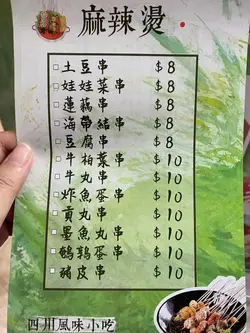 麻辣燙
□土豆串 $8
□娃娃菜串 $8
□蓮藕串 $8
□海帶結串 $8
□豆腐串 $8
□牛柏葉串 $10
□牛丸串 $10
□炸魚蛋串 $10
□貢丸串 $10
□墨魚丸串 $10
□鵪鶉蛋串 $10
□豬皮串 $10
四川風味小吃